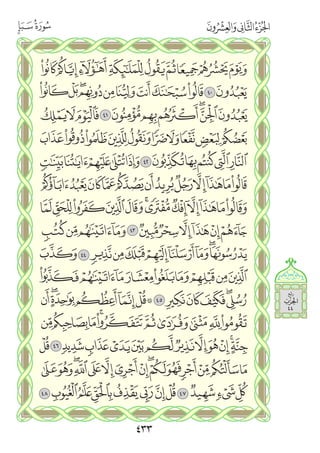 الجُزْءُ الثَّانِي وَالْعِشْرُونَ
سُورَةُ سَبَإٍ
وَيَوْمَ يَحْشُرُهُمْ جَمِيعًا ثُمَّ يَقُولُ لِلْمَلَٰٓئِكَةِ أَهَٰٓؤُلَآءِ إِيَّاكُمْ كَانُوا۟
يَعْبُدُونَ ٤٠ قَالُوا۟ سُبْحَٰنَكَ أَنتَ وَلِيُّنَا مِن دُونِهِم ۖ بَلْ كَانُوا۟
يَعْبُدُونَ ٱلْجِنَّ ۖ أَكْثَرُهُم بِهِم مُّؤْمِنُونَ ٤١ فَٱلْيَوْمَ لَا يَمْلِكُ
بَعْضُكُمْ لِبَعْضٍ نَّفْعًا وَلَا ضَرًّا وَنَقُولُ لِلَّذِينَ ظَلَمُوا۟ ذُوقُوا۟ عَذَابَ
ٱلنَّارِ ٱلَّتِى كُنتُم بِهَا تُكَذِّبُونَ ٤٢ وَإِذَا تُتْلَىٰ عَلَيْهِمْ ءَايَٰتُنَا بَيِّنَٰتٍ
قَالُوا۟ مَا هَٰذَآ إِلَّا رَجُلٌ يُرِيدُ أَن يَصُدَّكُمْ عَمَّا كَانَ يَعْبُدُ ءَابَآؤُكُمْ
وَقَالُوا۟ مَا هَٰذَآ إِلَّآ إِفْكٌ مُّفْتَرًى ۚ وَقَالَ ٱلَّذِينَ كَفَرُوا۟ لِلْحَقِّ لَمَّا
جَآءَهُمْ إِنْ هَٰذَآ إِلَّا سِحْرٌ مُّبِينٌ ٤٣ وَمَآ ءَاتَيْنَٰهُم مِّن كُتُبٍ
يَدْرُسُونَهَا ۖ وَمَآ أَرْسَلْنَآ إِلَيْهِمْ قَبْلَكَ مِن نَّذِيرٍ ٤٤ وَكَذَّبَ
ٱلَّذِينَ مِن قَبْلِهِمْ وَمَا بَلَغُوا۟ مِعْشَارَ مَآ ءَاتَيْنَٰهُمْ فَكَذَّبُوا۟
رُسُلِى ۖ فَكَيْفَ كَانَ نَكِيرِ ٤٥ ۞ قُلْ إِنَّمَآ أَعِظُكُم بِوَٰحِدَةٍ ۖ أَن
تَقُومُوا۟ لِلَّهِ مَثْنَىٰ وَفُرَٰدَىٰ ثُمَّ تَتَفَكَّرُوا۟ ۚ مَا بِصَاحِبِكُم مِّن
جِنَّةٍ ۚ إِنْ هُوَ إِلَّا نَذِيرٌ لَّكُم بَيْنَ يَدَىْ عَذَابٍ شَدِيدٍ ٤٦ قُلْ
مَا سَأَلْتُكُم مِّنْ أَجْرٍ فَهُوَ لَكُمْ ۖ إِنْ أَجْرِىَ إِلَّا عَلَى ٱللَّهِ ۖ وَهُوَ عَلَىٰ
كُلِّ شَىْءٍ شَهِيدٌ ٤٧ قُلْ إِنَّ رَبِّى يَقْذِفُ بِٱلْحَقِّ عَلَّٰمُ ٱلْغُيُوبِ ٤٨
الحِزْب
٤٤
٤٣٣